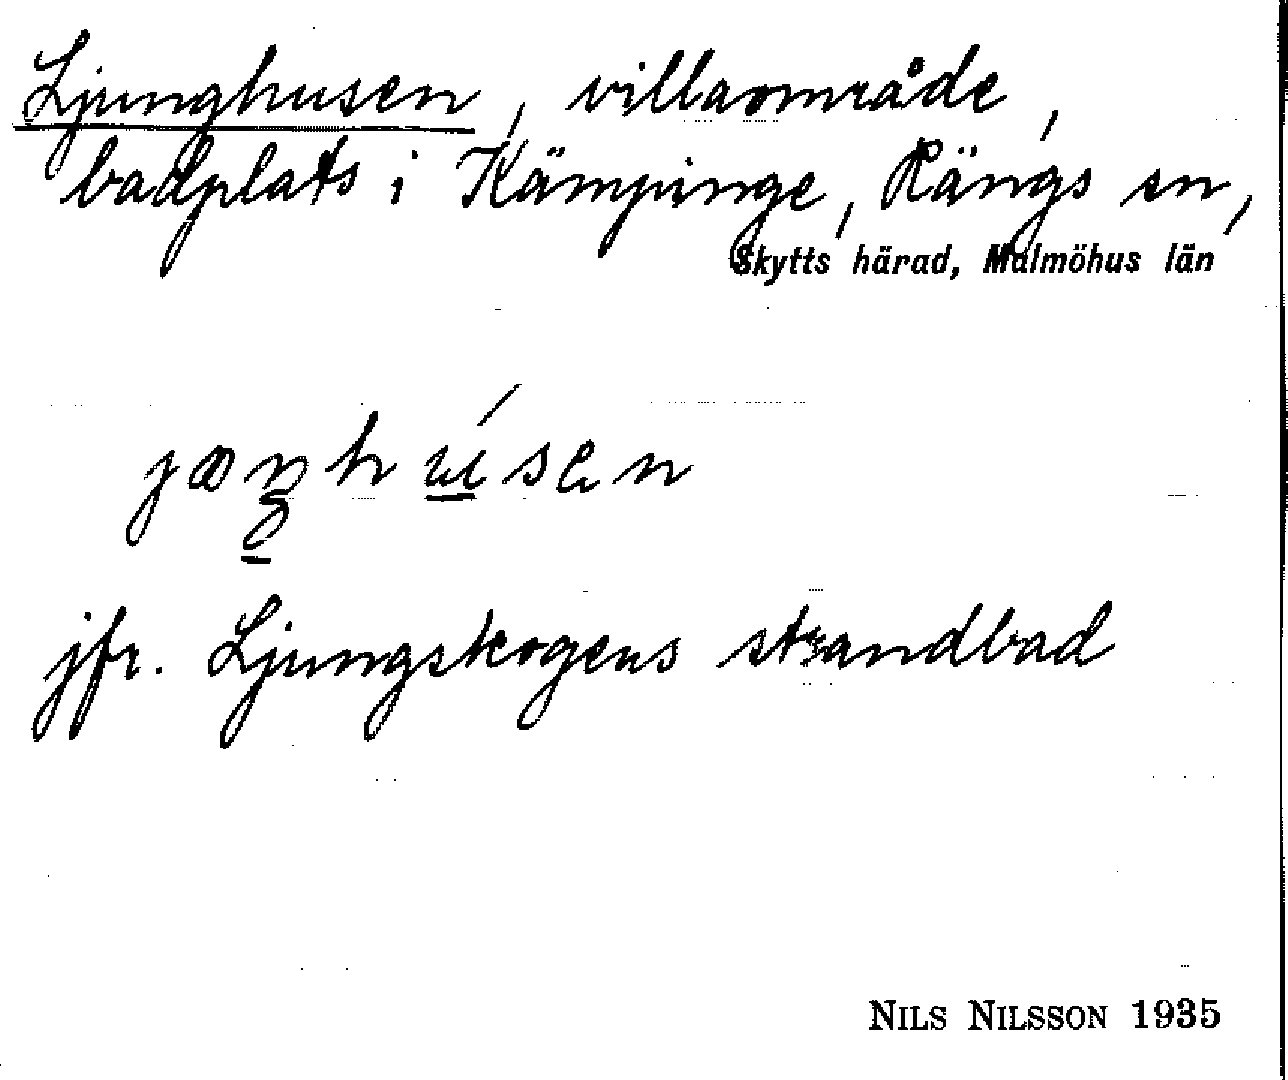 Ljunghusen, villaområde,
badplats i Kämpinge, Rängs sn,
Skytts härad, Malmöhus län
jfr. Ljungskogens strandbad
NILS NILSSON 1935